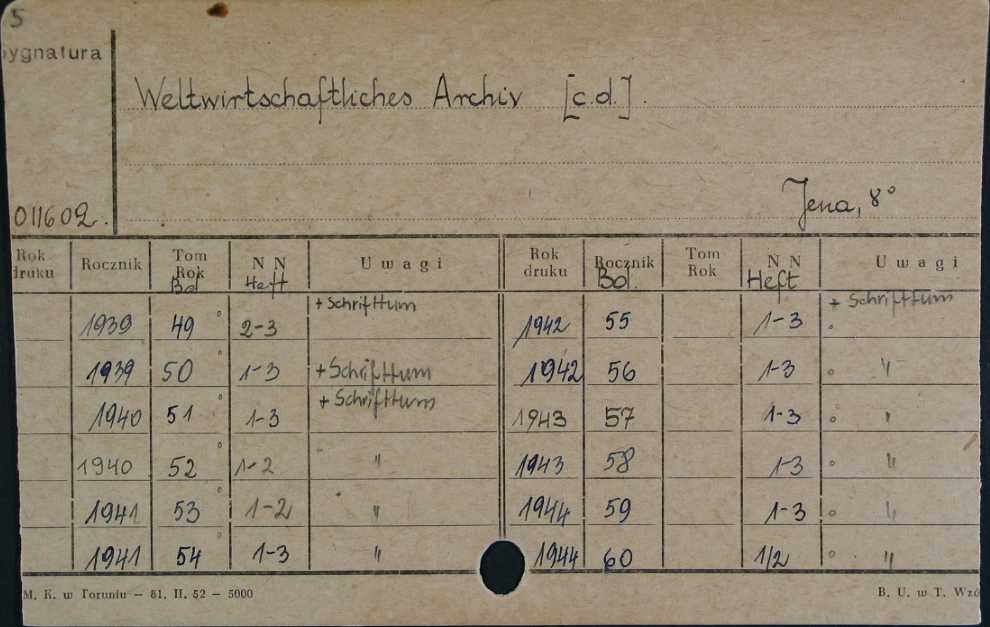 5
Sygnatura
Weltwirtschaftliches Archiv [c.d.].
Jena, 8°
011602.
Rok druku Rocznik Tom Rok N N Uwagi Rok druku Rocznik Tom Rok N N Uwagi
Bd Heft Bd. Heft
1939 49 ° 2-3 + Schrifttum 1942 55 1-3 + Schrifttum °
1939 50 ° 1-3 + Schrifttum 1942 56 1-3 ° "
1940 51 ° 1-3 + Schrifttum 1943 57 1-3 ° "
1940 52 ° 1-2 " 1943 58 1-3 ° "
1941 53 ° 1-2 " 1944 59 1-3 ° "
1941 54 ° 1-3 " 1944 60 1/2 ° "
M. K. w Toruniu – 81. II. 52 – 5000 B. U. w T. Wzó